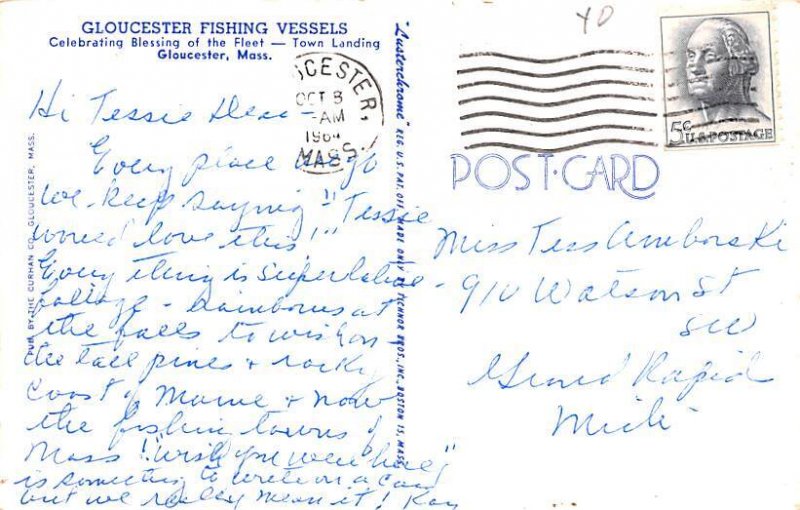 GLOUCESTER FISHING VESSELS
Celebrating Blessing of the Fleet — Town Landing
Gloucester, Mass.
Hi Tessie Dear -
Every place we go
we keep saying "Tessie
would love this!"
Everything is superlative -
foliage - rainbows at
the falls to wish on
the tall pines & rocky
coast of Maine & now
the fishing towns of
Mass! "wish you were here"
is something to write on a card
but we really mean it! Kay
PUB. BY THE CURHAN CO., GLOUCESTER, MASS.
"Lusterchrome" REG. U.S. PAT. OFF. MADE ONLY BY TICHNOR BROS., INC., BOSTON 15, MASS.
OCT 8
AM
MASS.
YD
5c U.S. POSTAGE
POST-CARD
Miss Tess Amborski
910 Watson St
SW
Grand Rapids
Mich